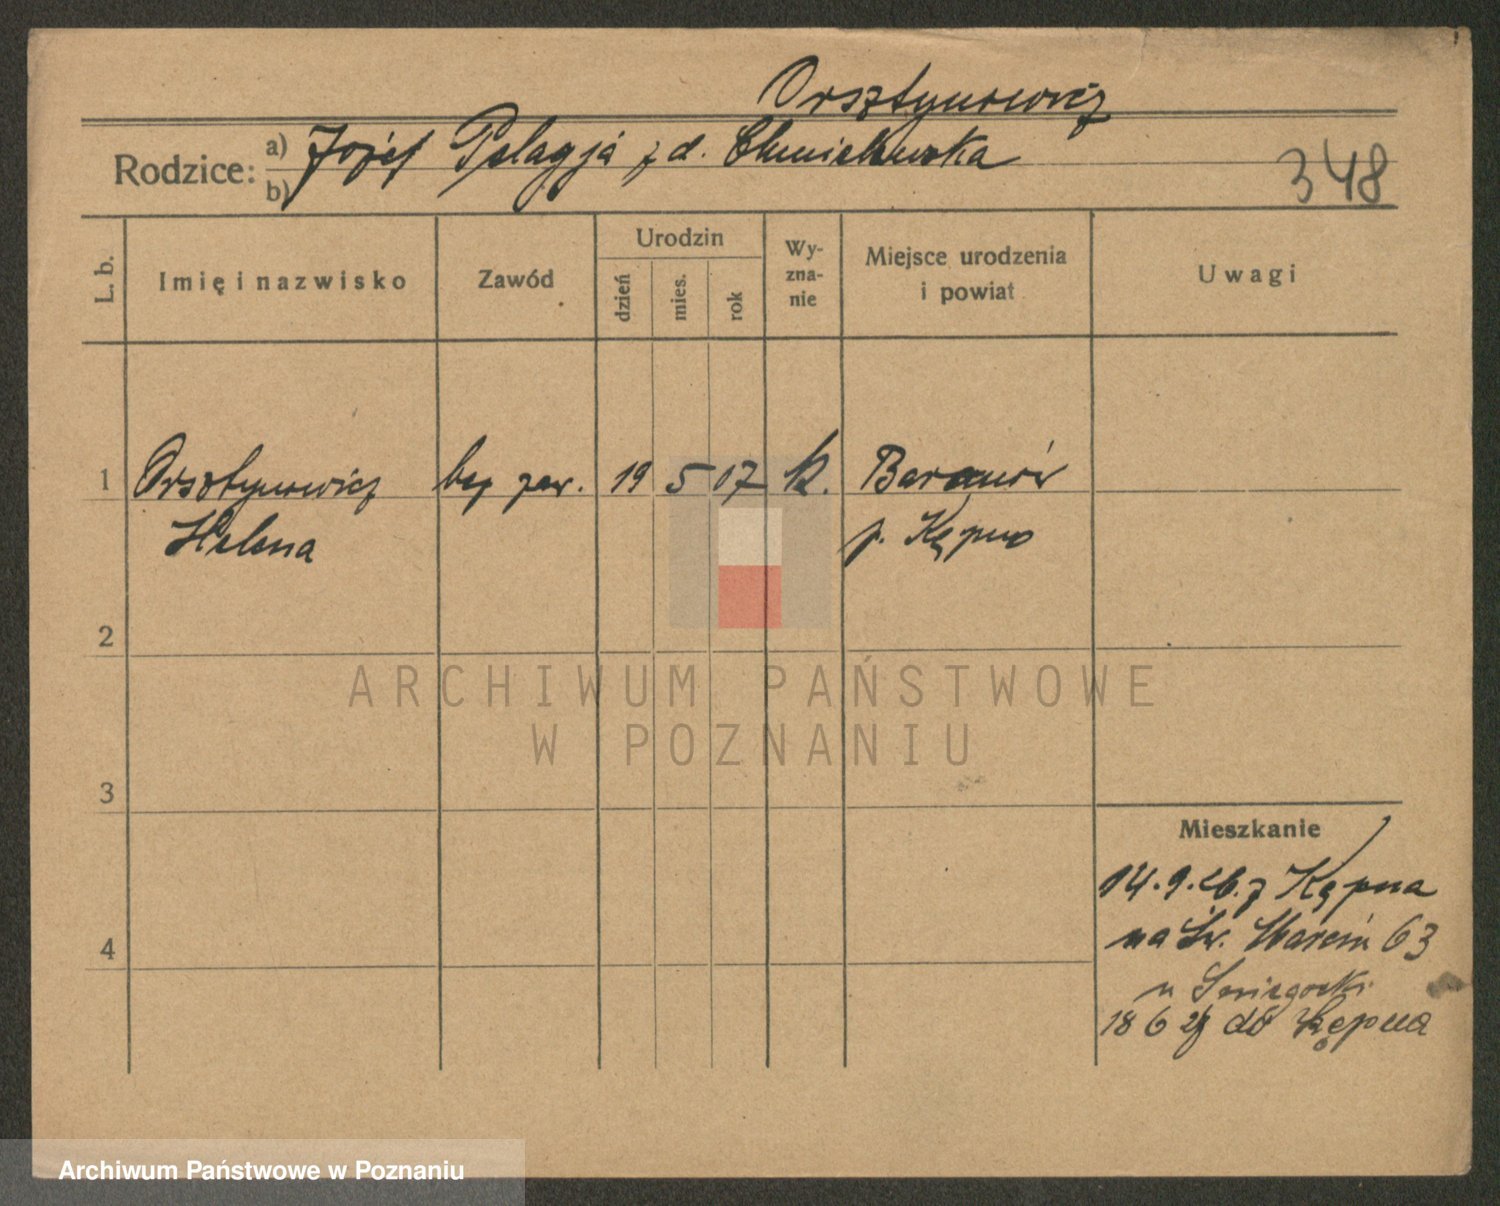 Orsztynowicz
Rodzice: a) Józef Pelagja z d. Chmielewska
b)
348
L. b.
Imię i nazwisko
Zawód
Urodzin
dzień
mies.
rok
Wy-
zna-
nie
Miejsce urodzenia
i powiat
Uwagi
1 Orsztynowicz bez zaw. 19 5 07 k. Baranów
Helena p. Kępno
2
ARCHIWUM PAŃSTWOWE
W POZNANIU
3
Mieszkanie
14.9.26. z Kępna
na Św. Marcin 63
u
4
18 6 27 do Kępna
Archiwum Państwowe w Poznaniu